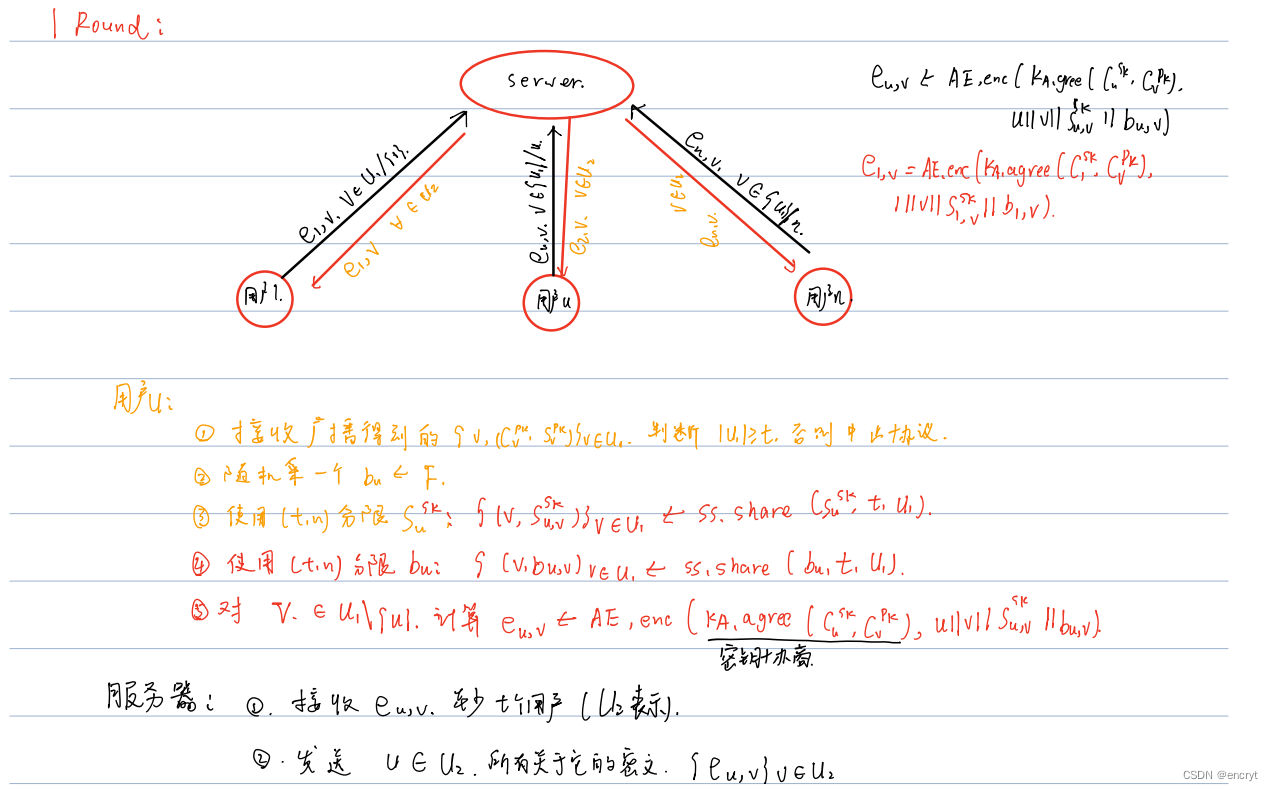 1 Round:
server.
e_{u,v} ← AE.enc(KA.gree(C_u^{sk}, C_v^{pk}),
u||v||S_{u,v}^{sk}||b_{u,v})
e_{1,v} = AE.enc(KA.agree(C_1^{sk}, C_v^{pk}),
1||v||S_{1,v}^{sk}||b_{1,v}).
e_{1,v}, v∈U_1/{1}.
e_{1,v} ∀∈U_2
e_{u,v}. v∈{U_1}/u.
e_{2,v}. v∈U_2
e_{n,v}, v∈{U_1}/n.
v∈U_2
e_{n,v}.
用户1.
用户u
用户n.
用户u:
① 接收广播得到的{v,(C_v^{pk}, S_v^{pk})}_{v∈U_1}. 判断|U_1|≥t, 否则中止协议.
② 随机采一个 b_u ← F.
③ 使用(t,n)分限 S_u^{sk}: {(v, S_{u,v}^{sk})}_{v∈U_1} ← ss.share(S_u^{sk}, t, U_1).
④ 使用(t,n)分限 b_u: {(v,b_{u,v})_{v∈U_1} ← ss.share(b_u, t, U_1).
⑤ 对 v.∈U_1\{u}. 计算 e_{u,v} ← AE.enc(KA.agree(C_u^{sk}, C_v^{pk}), u||v||S_{u,v}^{sk}||b_{u,v}).
密钥协商.
服务器: ①. 接收 e_{u,v}. 至少t个用户(U_2表示).
②. 发送 u∈U_2. 所有关于它的密文. {e_{u,v}}_{v∈U_2}
CSDN @encryt